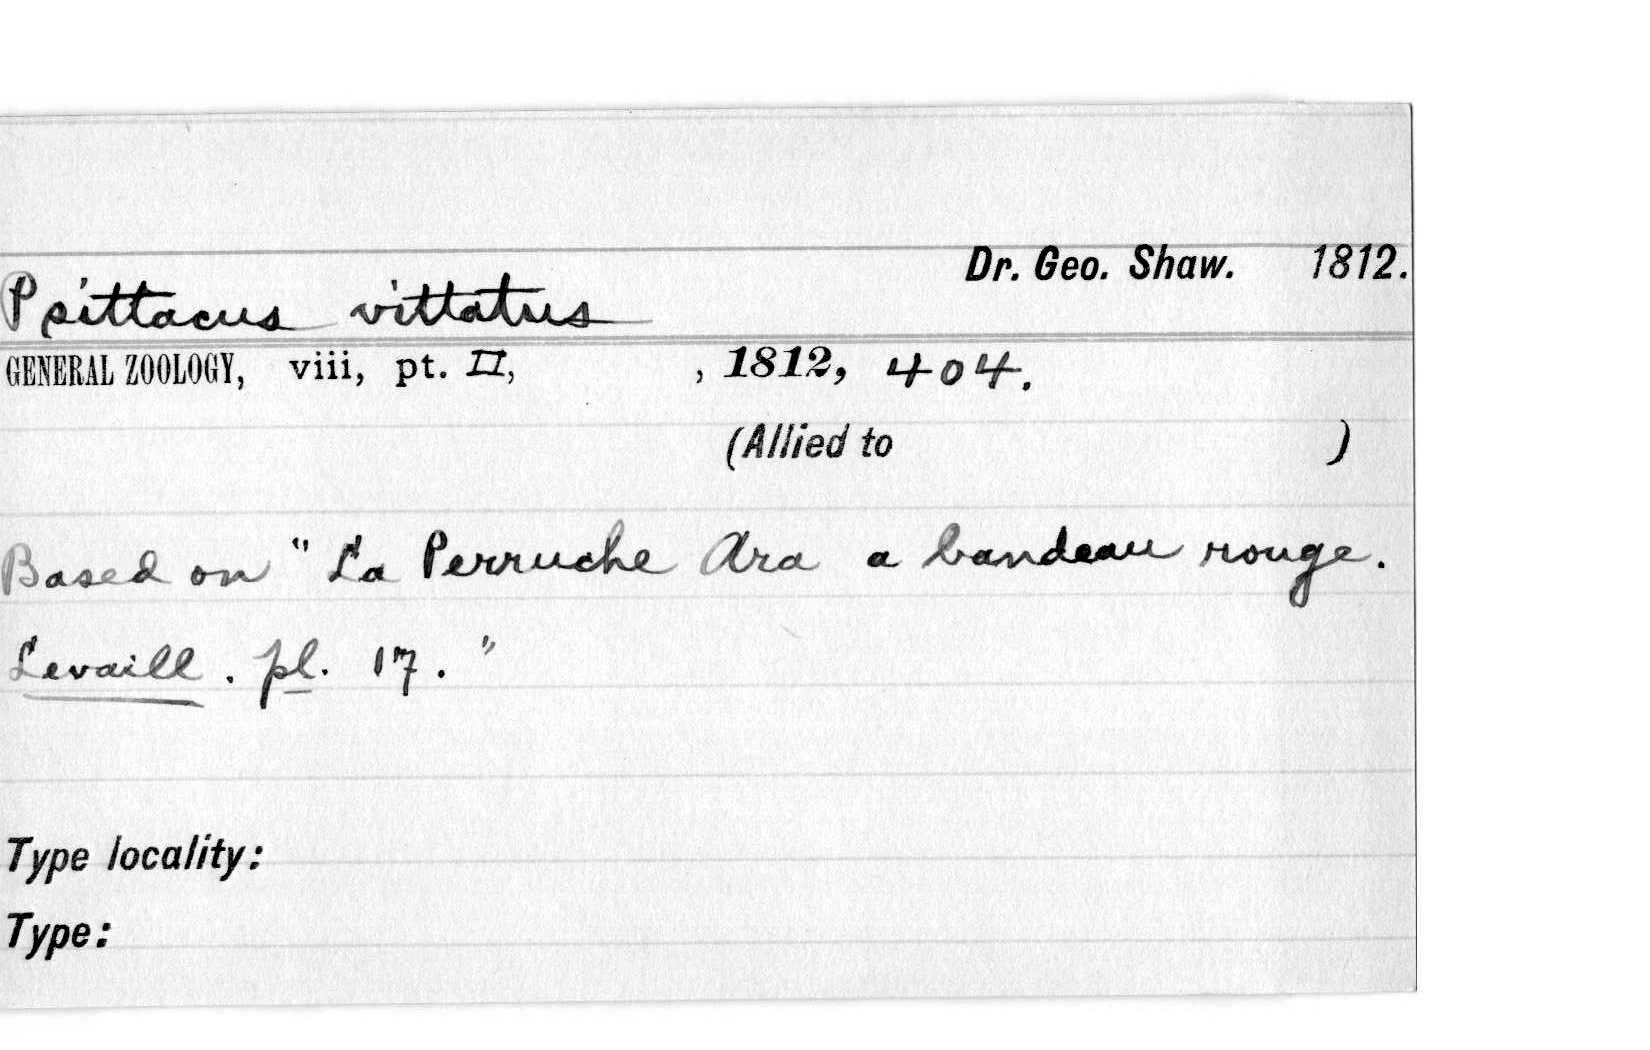 Dr. Geo. Shaw. 1812.
Psittacus vittatus
GENERAL ZOOLOGY, viii, pt. II, , 1812, 404.
(Allied to )
Based on "La Perruche Ara a bandeau rouge.
Levaill. pl. 17."
Type locality:
Type: